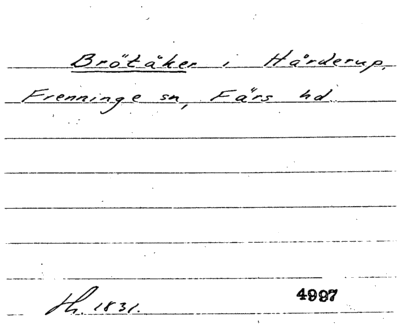 Brötåker i Hårderup,
Frenninge sn, Färs hd.
Th. 1831.
4997